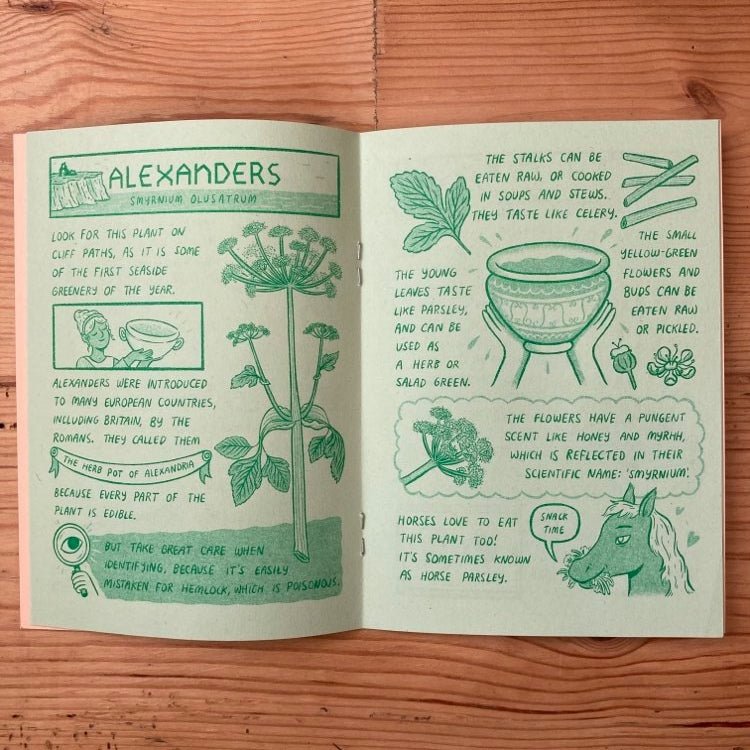 ALEXANDERS
SMYRNIUM OLUSATRUM
LOOK FOR THIS PLANT ON
CLIFF PATHS, AS IT IS SOME
OF THE FIRST SEASIDE
GREENERY OF THE YEAR.
ALEXANDERS WERE INTRODUCED
TO MANY EUROPEAN COUNTRIES,
INCLUDING BRITAIN, BY THE
ROMANS. THEY CALLED THEM
THE HERB POT OF ALEXANDRIA
BECAUSE EVERY PART OF THE
PLANT IS EDIBLE.
BUT TAKE GREAT CARE WHEN
IDENTIFYING, BECAUSE IT'S EASILY
MISTAKEN FOR HEMLOCK, WHICH IS POISONOUS.
THE STALKS CAN BE
EATEN RAW, OR COOKED
IN SOUPS AND STEWS.
THEY TASTE LIKE CELERY.
THE YOUNG
LEAVES TASTE
LIKE PARSLEY,
AND CAN BE
USED AS
A HERB OR
SALAD GREEN.
THE SMALL
YELLOW-GREEN
FLOWERS AND
BUDS CAN BE
EATEN RAW
OR PICKLED.
THE FLOWERS HAVE A PUNGENT
SCENT LIKE HONEY AND MYRHH,
WHICH IS REFLECTED IN THEIR
SCIENTIFIC NAME: 'SMYRNIUM'.
HORSES LOVE TO EAT
THIS PLANT TOO!
IT'S SOMETIMES KNOWN
AS HORSE PARSLEY.
SNACK
TIME